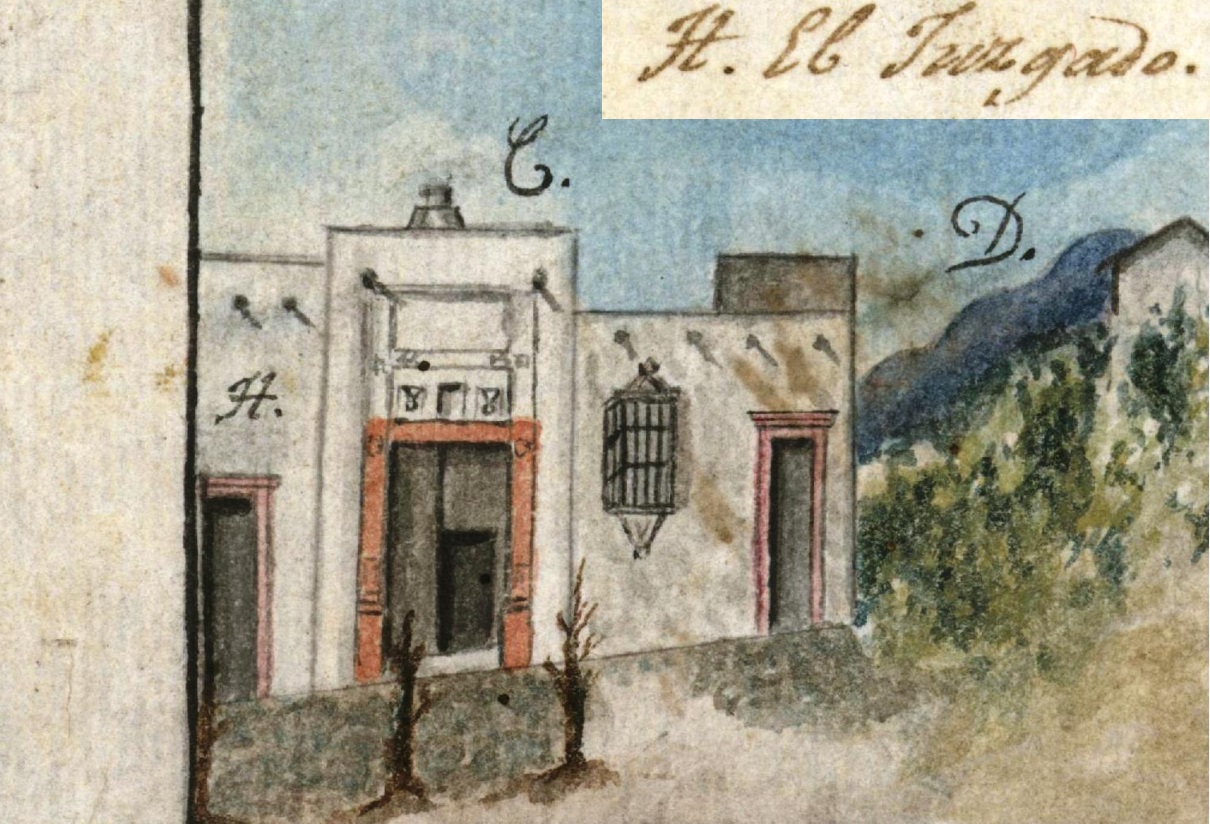 H. El Juzgado.
C.
D.
H.